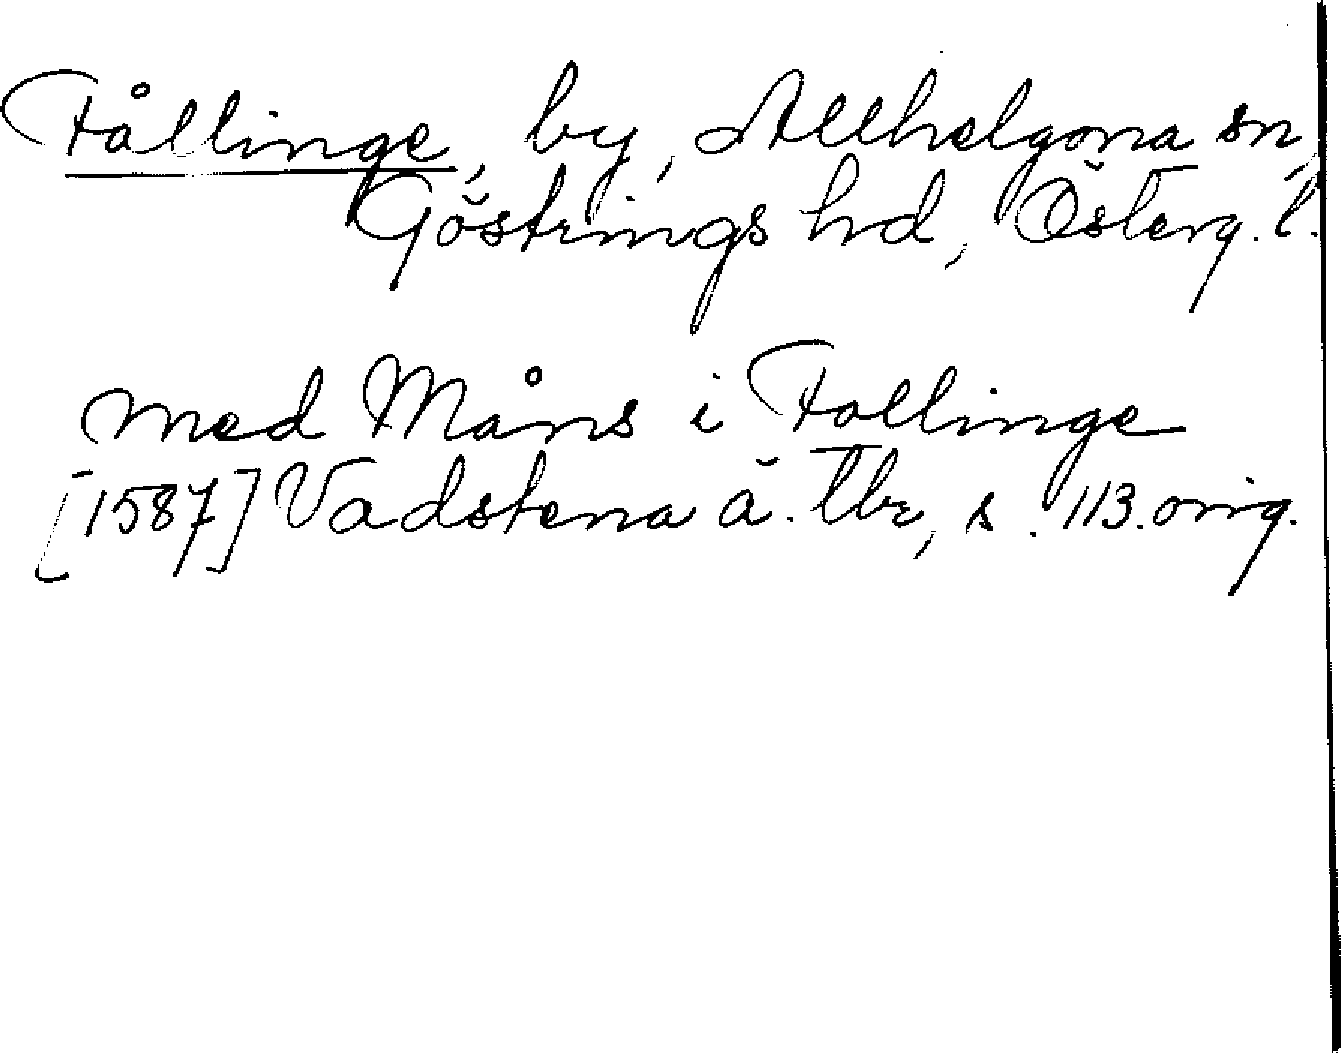 Fållinge, by, Allhelgona sn,
Göstrings hd, Österg. l.
med Måns i Follinge
[1587] Vadstena ä. Tbr, s. 113. orig.